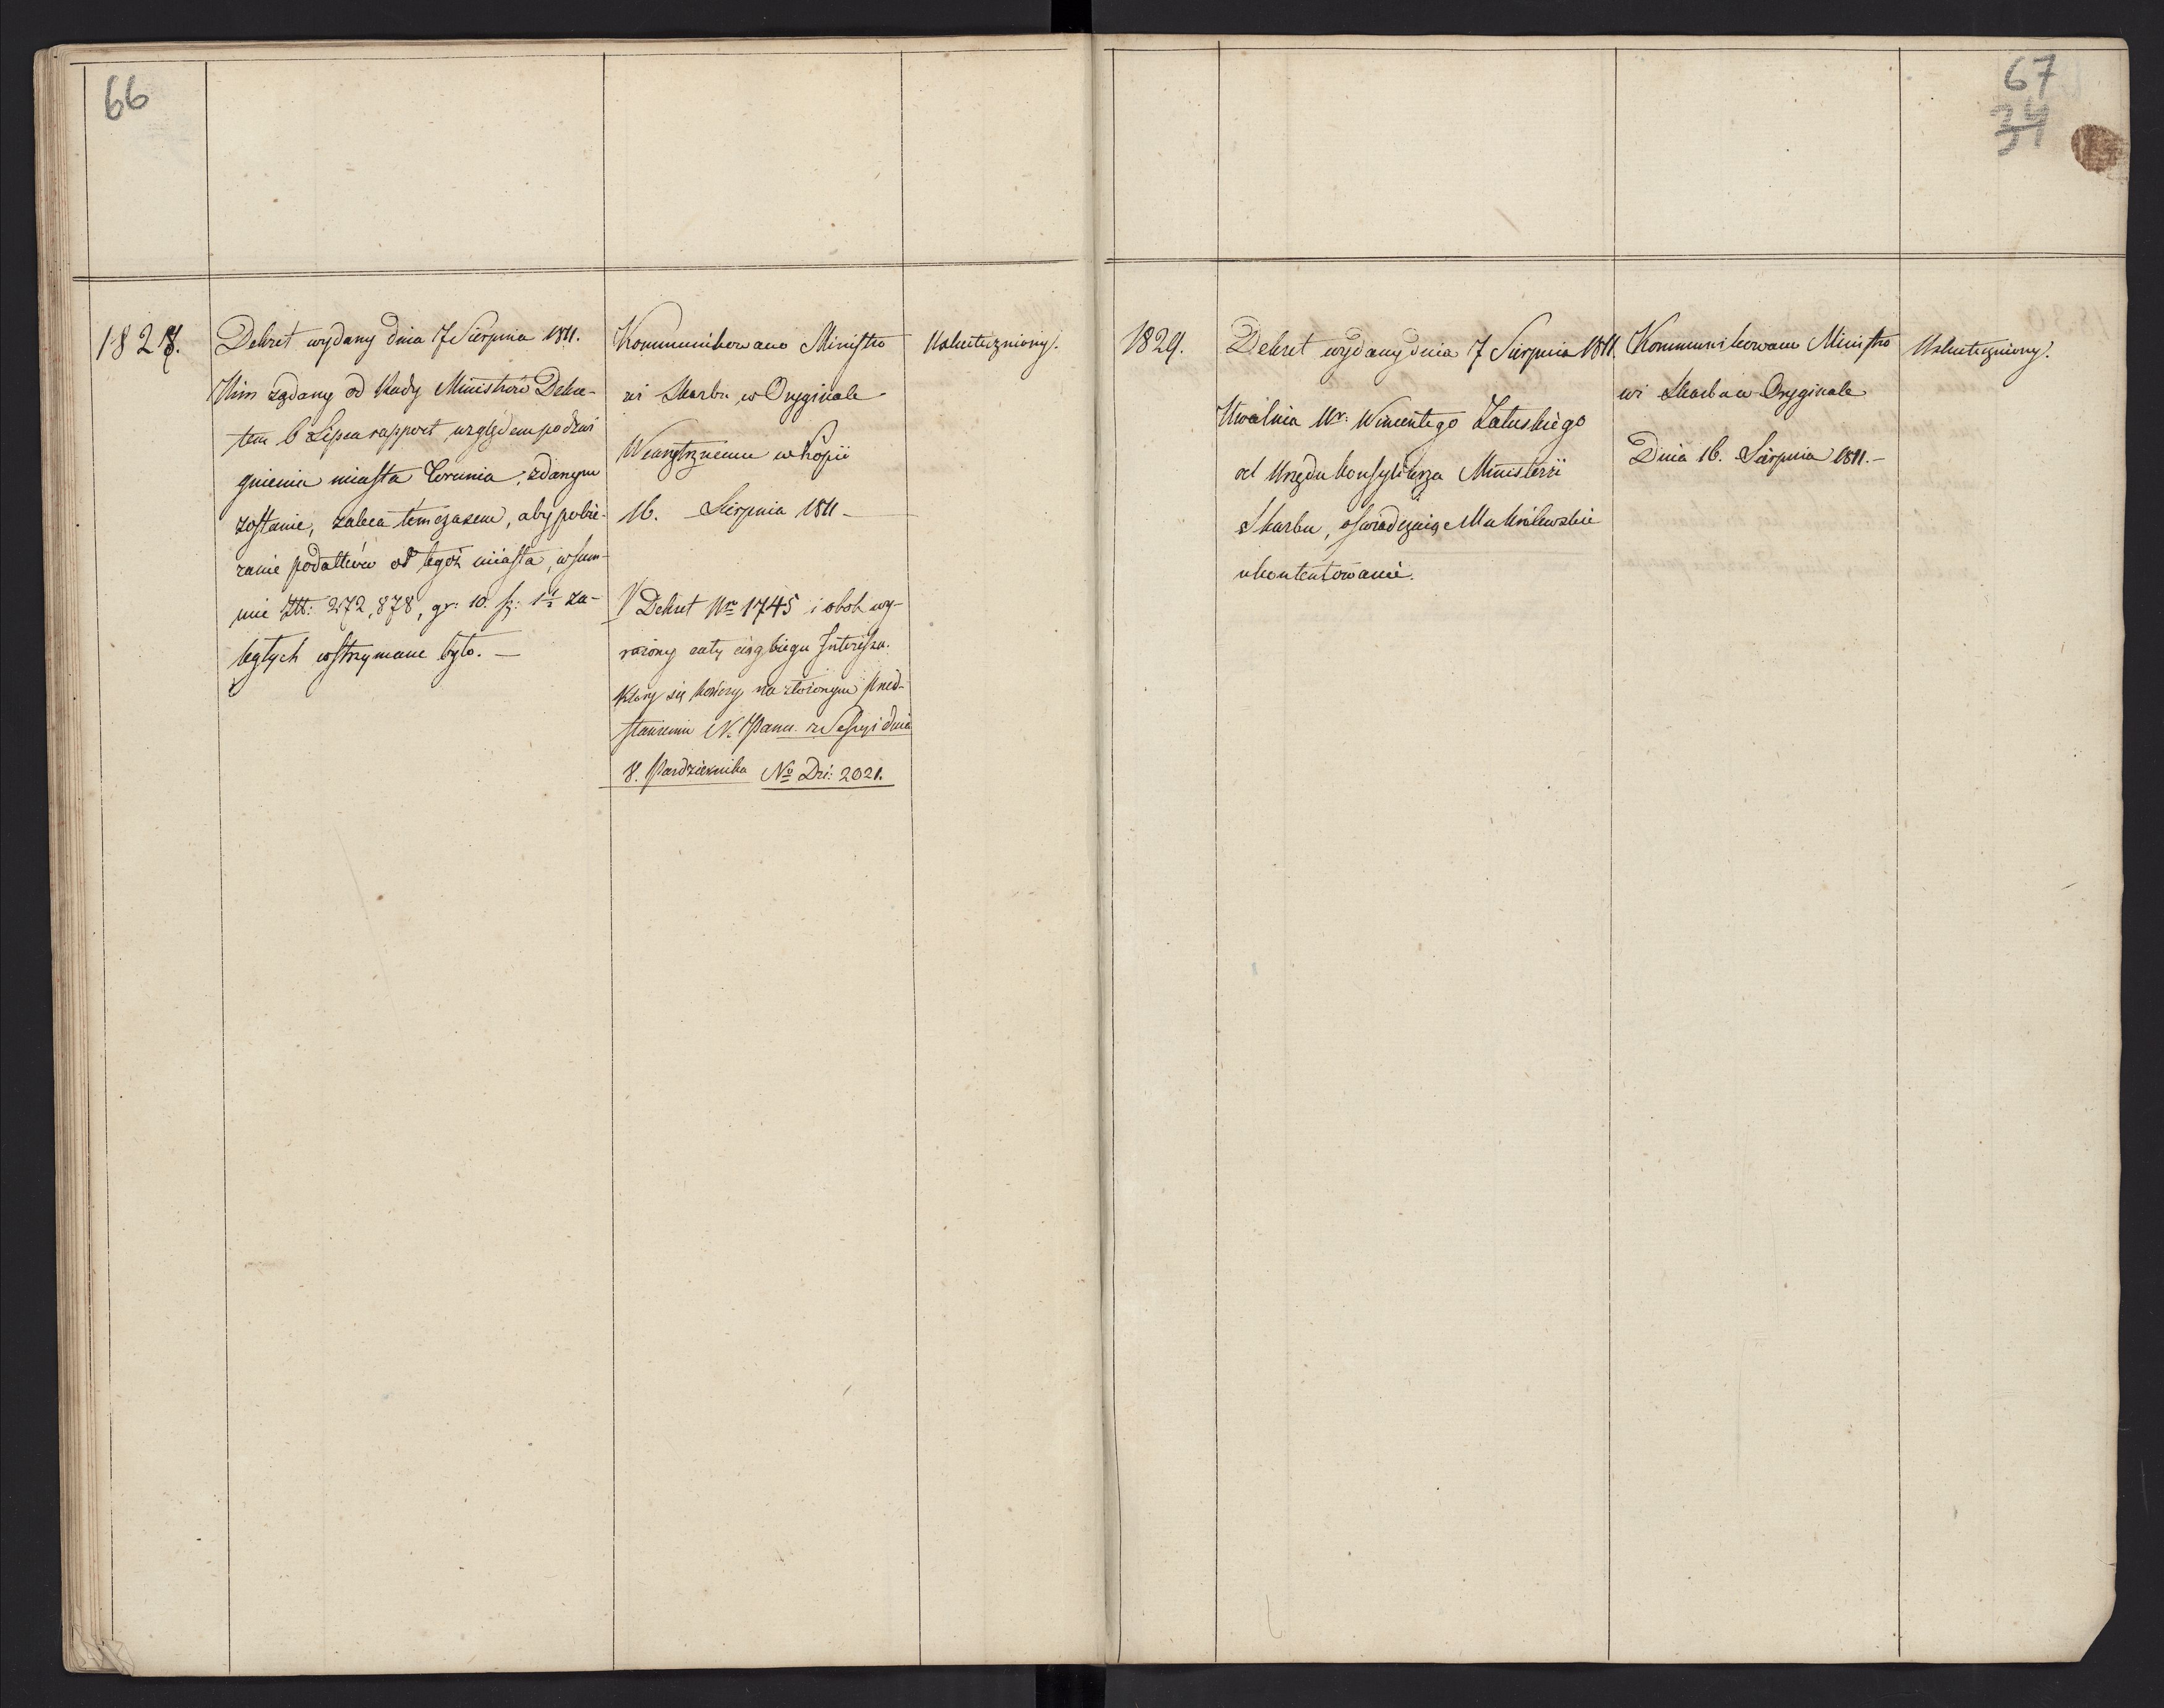 66
1828.
Dekret wydany dnia 7 Sierpnia 1811.
Nim żądany od Rady Ministrów Dekre-
tem 6 Lipca rapport, względem podźwi
gnienia miasta Torunia, zdanym
zostanie, zaleca tymczasem, aby pobie-
ranie podatków od tegoż miasta, w sum-
mie Złt: 272,878, gr: 10. sz: 1½ za-
ległych wstrzymane było. —
Kommunikowano Ministro
wi Skarbu w Oryginale
Wewnętrznemu w kopii
16. Sierpnia 1811 —
V Dekret Nr 1745 i obok wy-
rażony cały ciąg biegu Interessu.
który się kończy na złożonym przed-
stawieniu N. Panu z Sessyi dnia
8. Pazdziernika No Dzi: 2021.
Uskuteczniony.
67
34
1829.
Dekret wydany dnia 7 Sierpnia 1811.
Uwalnia Ur: Wincentego Załuskiego
od Urzędu Konsyliarza Ministerii
Skarbu, oświadczaiąc Mu Królewskie
ukontentowanie.
Kommunikowano Ministro
wi Skarbu w Oryginale
Dnia 16. Sierpnia 1811. —
Uskuteczniony.